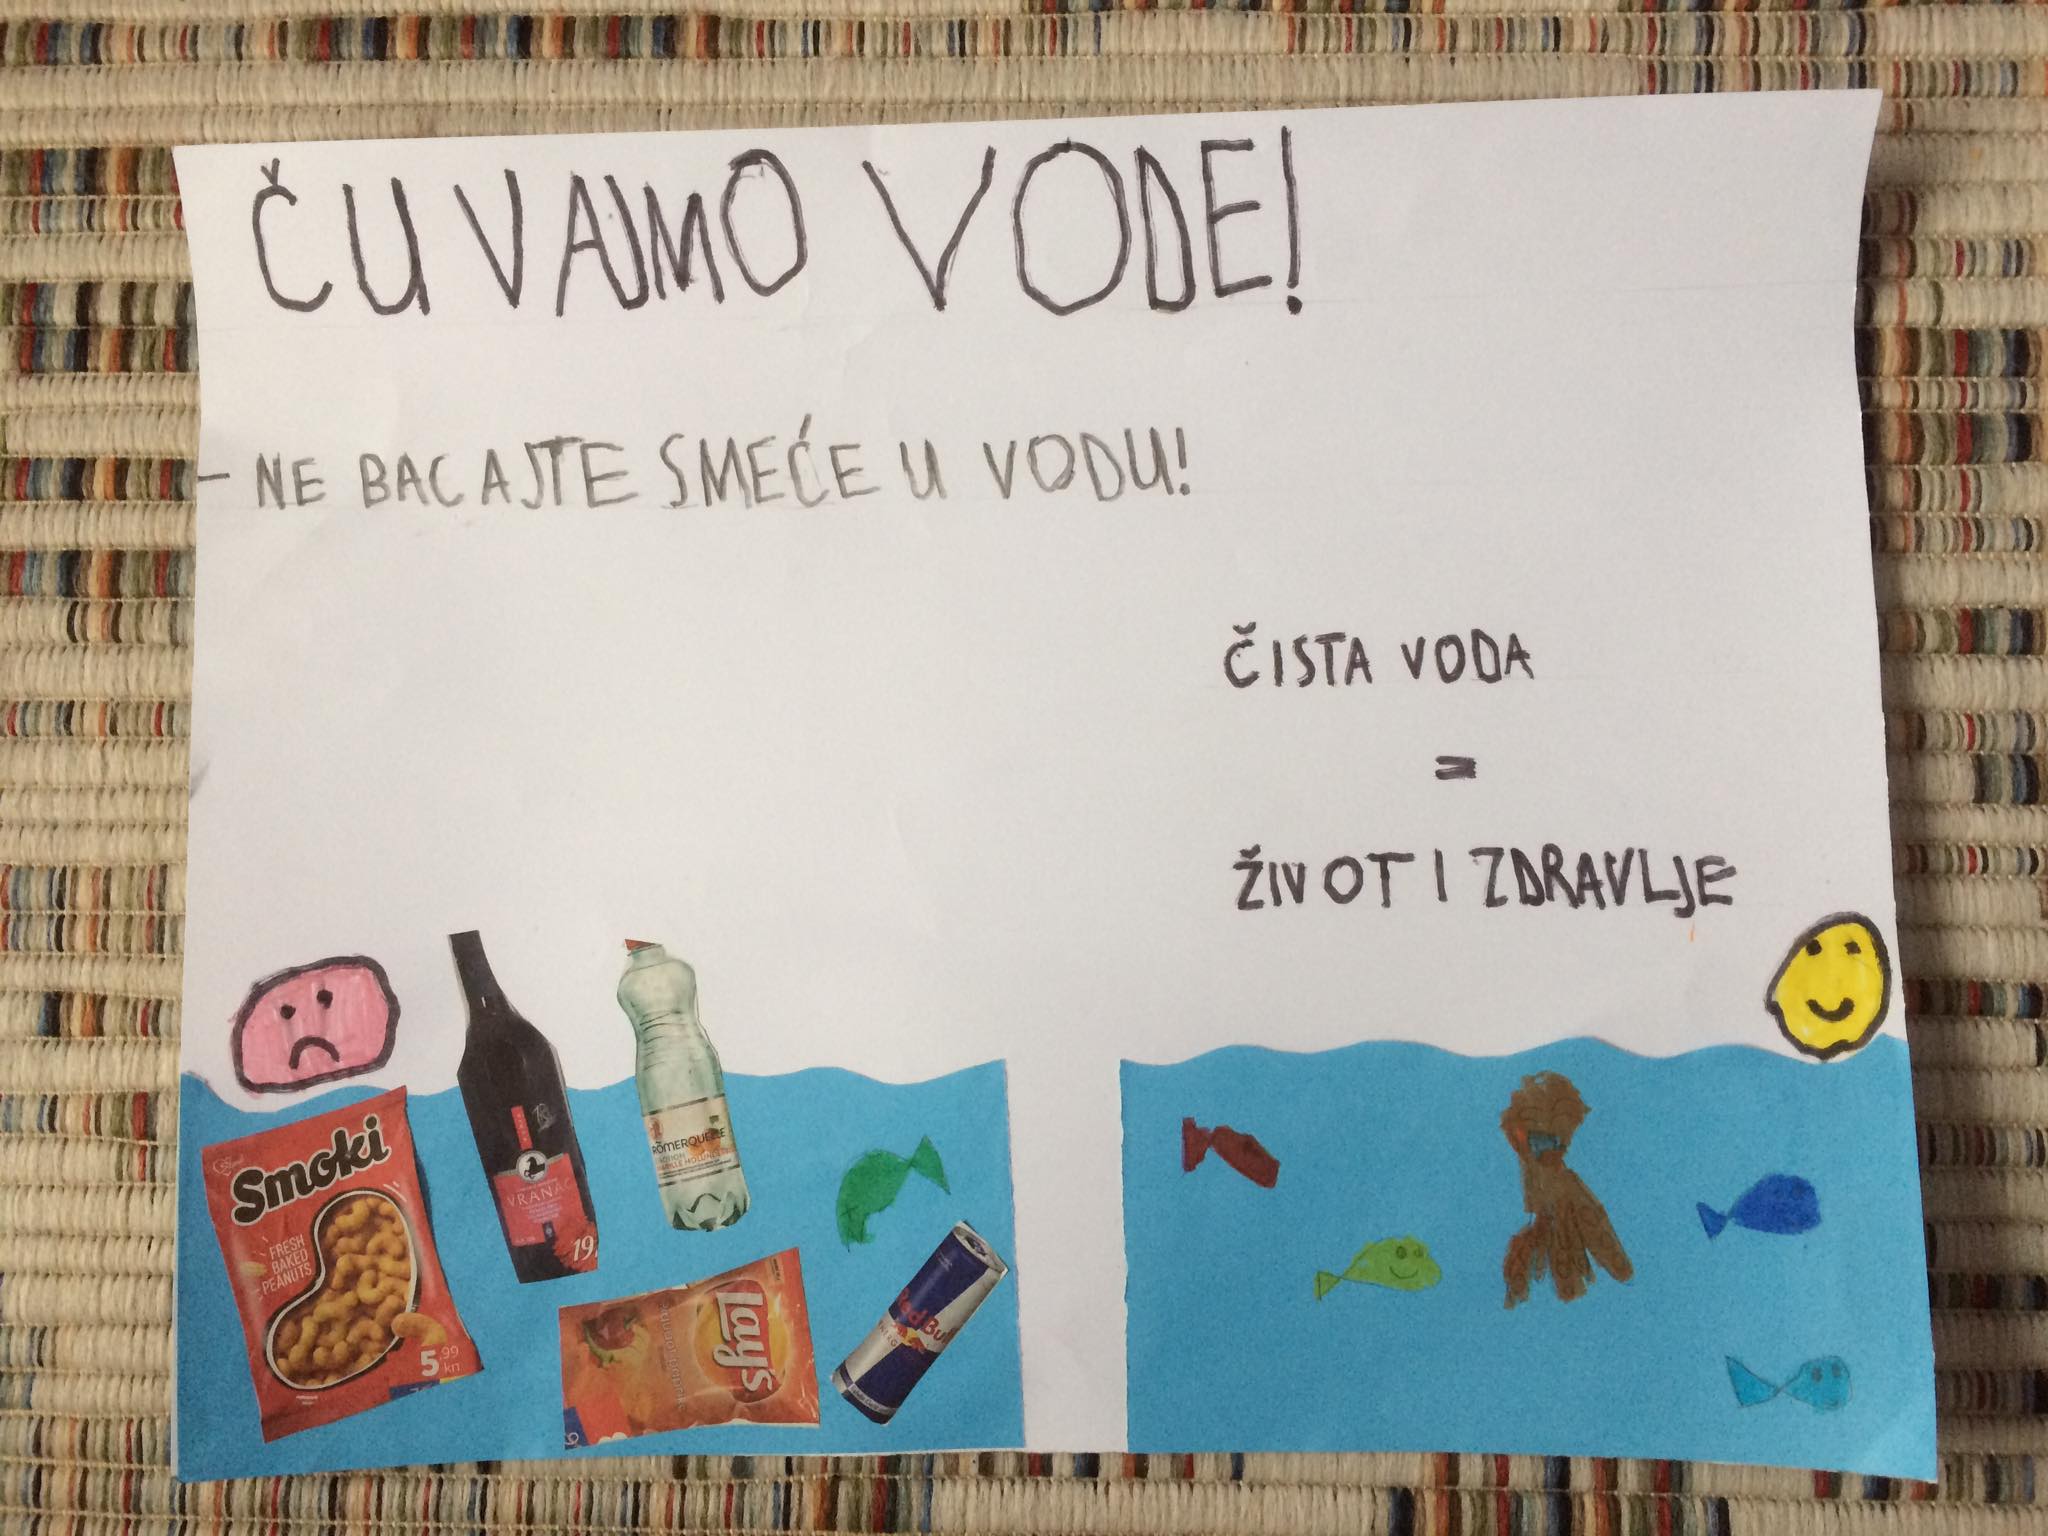 ČUVAJMO VODE!
- NE BACAJTE SMEĆE U VODU!
ČISTA VODA
=
ŽIVOT I ZDRAVLJE
Smoki
FRESH
BAKED
PEANUTS
5,99
kn
VRANAC
19,
RÖMERQUELLE
Lay's
Red Bull